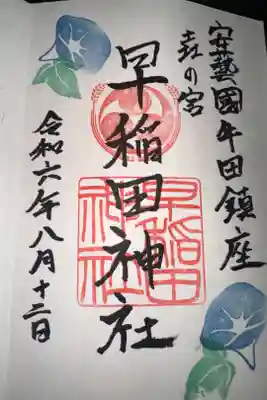 安藝國牛田鎮座
㐂の宮
早稲田神社
早稲田
神社
令和六年八月十二日